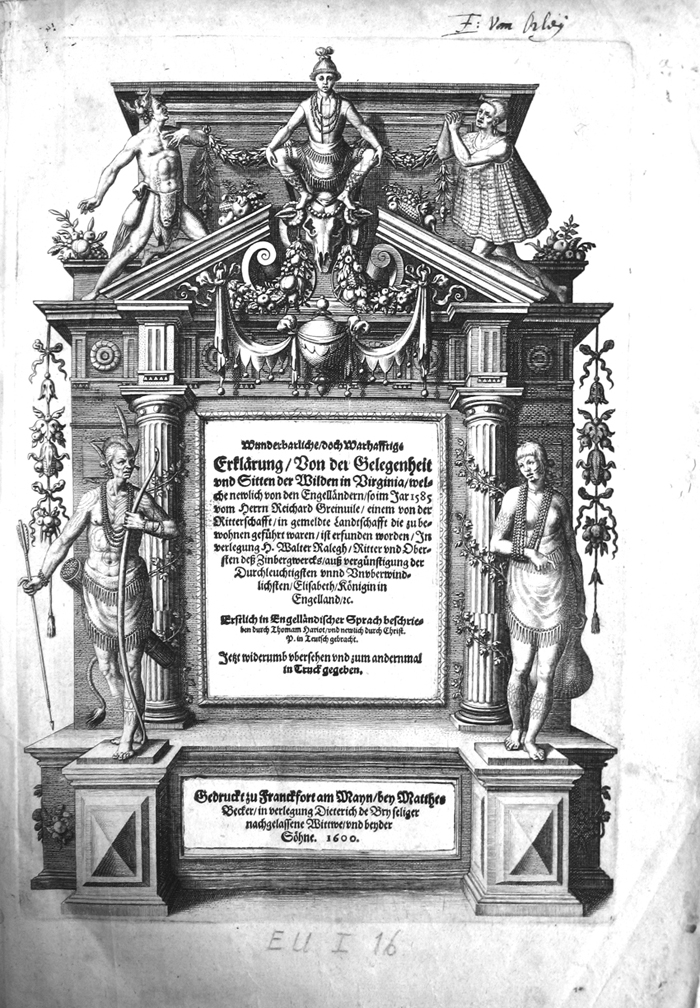 F: Von Orley
Wunderbarliche/doch Warhafftige
Erklärung/Von der Gelegenheit
vnd Sitten der Wilden in Virginia/wel-
che newlich von den Engelländern/so im Jar 1585
vom Herrn Reichard Greinuile/einem von der
Ritterschafft/in gemeldte Landtschafft die zu be-
wohnen geführt waren/ist erfunden worden/In
verlegung H. Walter Ralegh/Ritter vnd Ober-
sten deß Zinbergwercks/auß vergünstigung der
Durchleuchtigsten vnnd Vnvberwind-
lichsten/Elisabeth/Königin in
Engelland/ꝛc.
Erstlich in Engelländischer Sprach beschrie-
ben durch Thomam Hariot/vnd newlich durch Christ.
P. in Teutsch gebracht.
Jetzt widerumb vbersehen vnd zum andernmal
in Truck gegeben.
Gedruckt zu Franckfort am Mayn/bey Matthes
Becker/in verlegung Dieterich de Bry seliger
nachgelassene Wittwe/vnd beyder
Söhne. 1600.
EU I 16